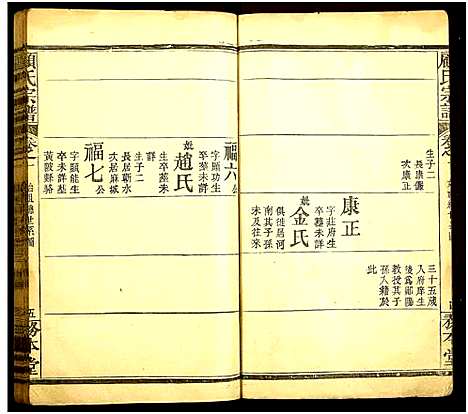 顧氏宗譜
卷之一
四
務本堂
生子二
長康儼
次康正
康正
字莊府生
卒葬未詳
妣金氏
俱徙昌河
南其子孫
未及往來
三十五歲
入府庠生
後為鄖陽
教授其子
孫入籍於
此
福六公
字顯能生
卒葬未詳
妣趙氏
生卒葬未
詳
生子二
長居蘄水
次居麻城
福七公
字顯能生
卒未詳墓
黃陂縣騎
顧氏宗譜
卷之一
五
務本堂